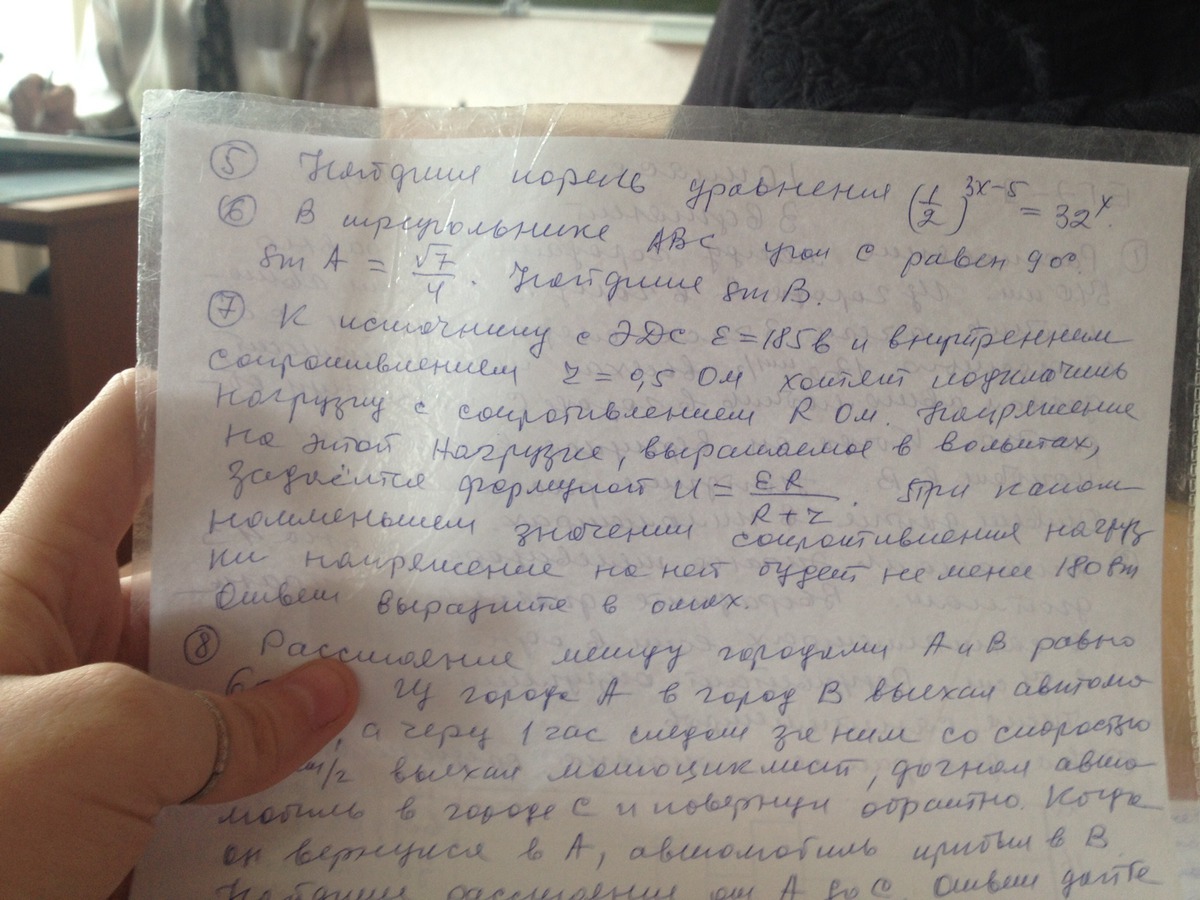 ⑤ Найдите корень уравнения (1/2)^(3x-5) = 32^x.
⑥ В треугольнике ABC угол C равен 90°.
sin A = √7/4. Найдите sin B.
⑦ К источнику с ЭДС ε = 185 в и внутренним
сопротивлением r = 0,5 Ом хотят подключить
нагрузку с сопротивлением R Ом. Напряжение
на этой нагрузке, выражаемое в вольтах,
задаётся формулой U = εR/(R+r). При каком
наименьшем значении сопротивления нагруз
ки напряжение на ней будет не мене 180 вт
Ответ выразите в омах.
⑧ Расстояние между городами А и В равно
Из города А в город В выехал автомо
, а через 1 час следом за ним со скоростью
км/г выехал мотоциклист, догнал авто
мобиль в городе С и повернул обратно. Когда
он вернулся в А, автомобиль прибыл в В
Найдите расстояние от А до С. Ответ дайте